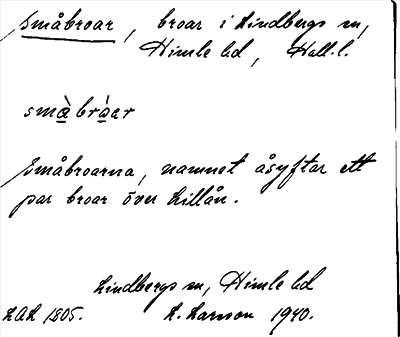 Småbroar, broar i Lindbergs sn,
Himle hd, Hall. l.
smà̱ brà̱ar
Småbroarna, namnet åsyftar ett
par broar över Lillån.
Lindbergs sn, Himle hd
LAL 1805. L. Larsson 1940.